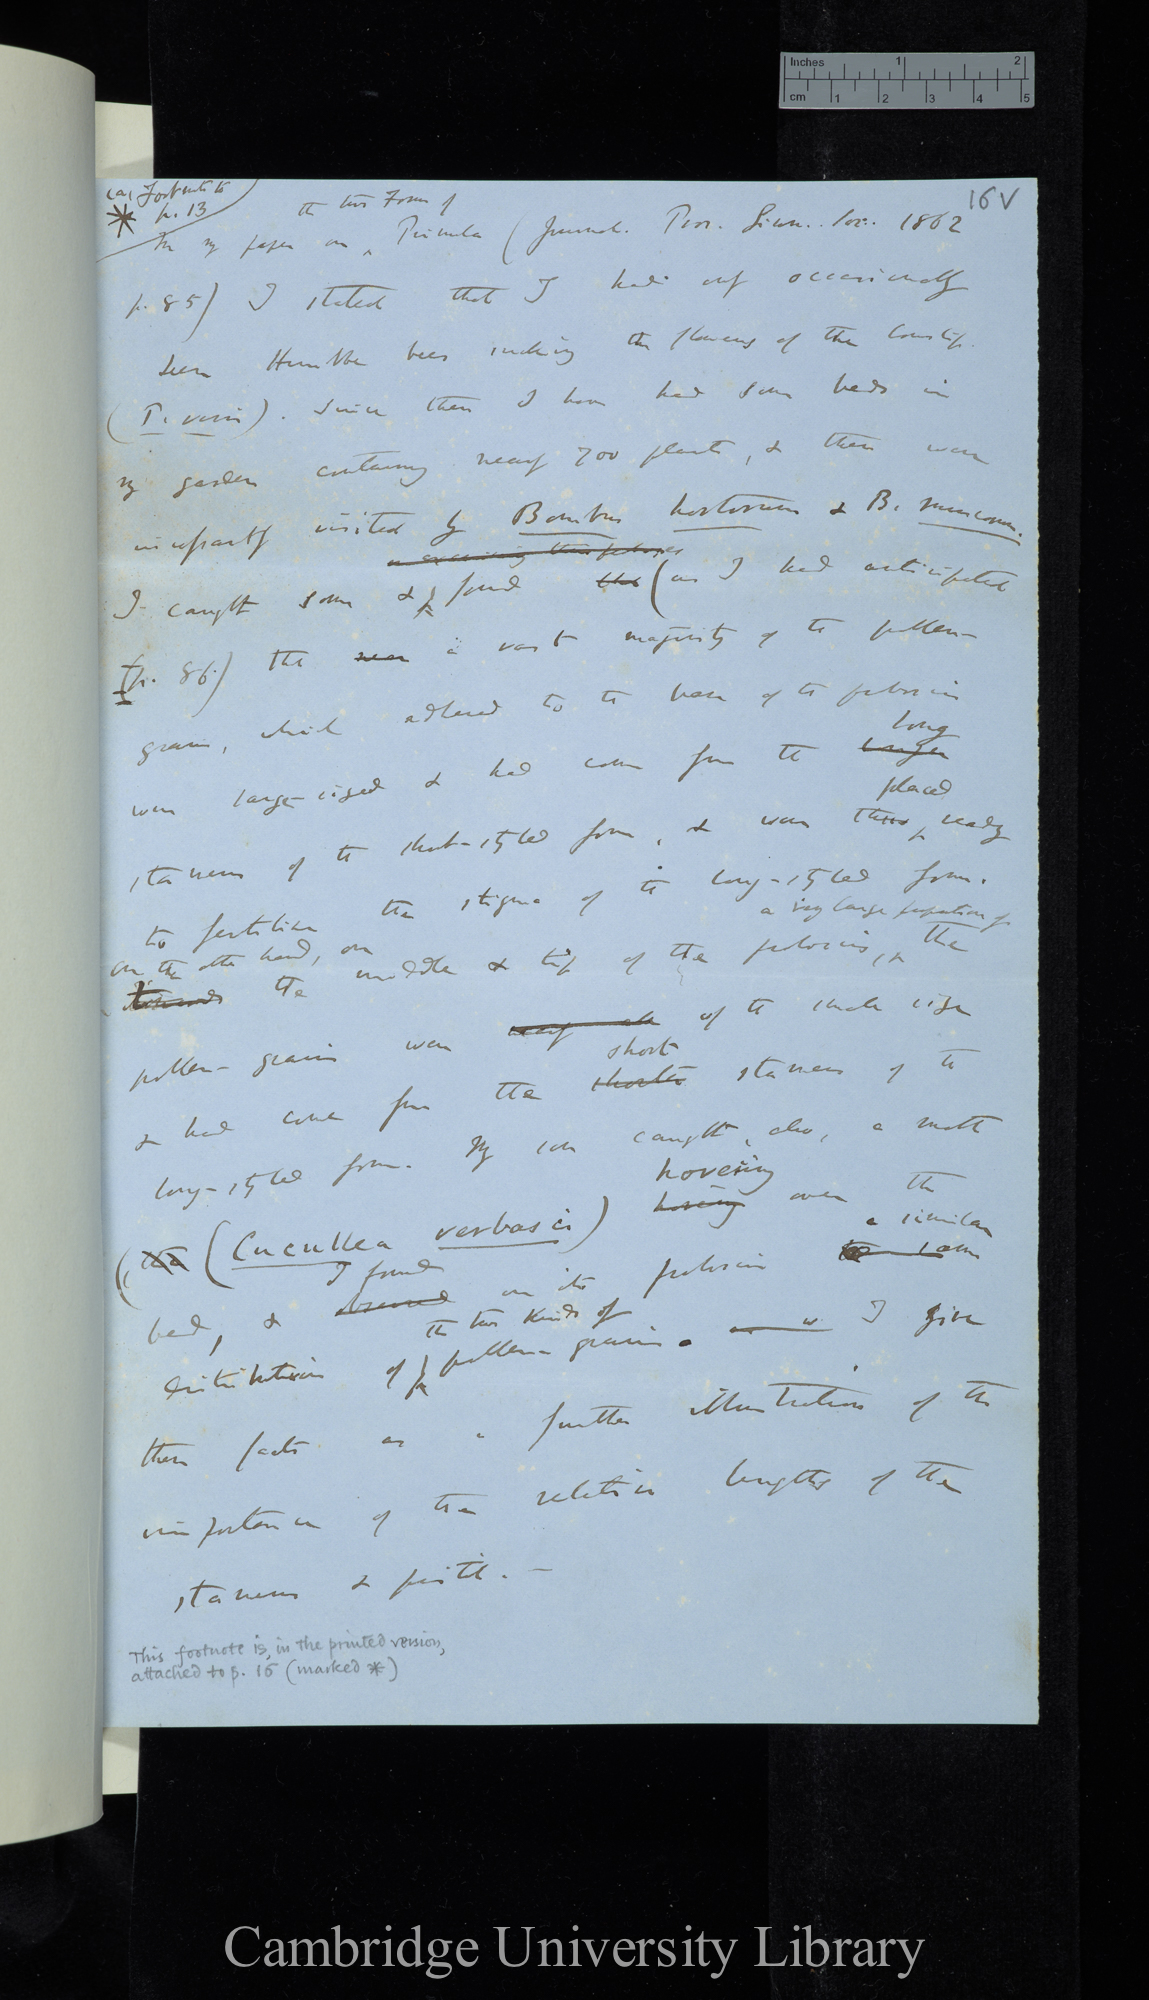 Inches 1 2
cm 1 2 3 4 5
16V
(a) Footnote to
* p. 13
the two Forms of
In my paper on Primula (Journal. Proc. Linn. Soc. 1862
p. 85) I stated that I had only occasionally
seen Humble bees sucking the flowers of the Cowslip.
(P. veris). Since then I have had some beds in
my garden containing nearly 700 plants, & these were
incessantly visited by Bombus hortorum & B. muscorum.
on examining their proboscides
I caught some & found that (as I had anticipated
p. 86) the a vast majority of the pollen-
grains, which adhered to the base of the proboscis
long
were large-sized & had come from the longer
placed
stamens of the short-styled form, & were thus ready
to fertilise the stigma of the long-styled form.
a very large proportion of
on the other hand, on
towards the middle & tip of the proboscis, the
pollen-grains were nearly all of the small size
short
& had come from the shorter stamens of the
long-styled form. My son caught, also, a moth
hovering
(Cucullea verbasci) hovering over the
a similar
I found
bed, & observed on its proboscis the same
the two kinds of
distribution of pollen-grains. I give
these facts as a further illustration of the
importance of the relative lengths of the
stamens & pistil. —
This footnote is, in the printed version,
attached to p. 15 (marked *)
Cambridge University Library